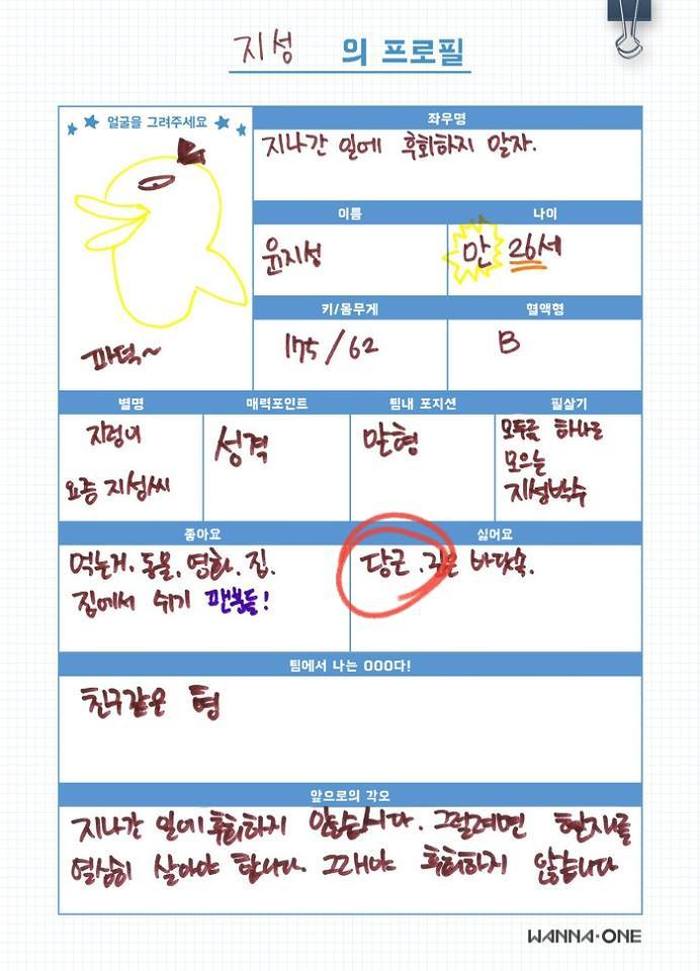 지성 의 프로필
얼굴을 그려주세요
파덕~
좌우명
지나간 일에 후회하지 말자.
이름
나이
윤지성
만 26세
키/몸무게
혈액형
175/62
B
별명
매력포인트
팀내 포지션
필살기
지렁이
요즘 지성씨
성격
맏형
모두를 하나로
모으는
지성박수
좋아요
싫어요
먹는거. 동물. 영화. 집.
집에서 쉬기 팬분들!
당근. 깊은 바닷속.
팀에서 나는 OOO다!
친구같은 형
앞으로의 각오
지나간 일에 후회하지 않습니다. 그럴려면 현재를
열심히 살아야 합니다. 그래야 후회하지 않습니다
WANNA·ONE